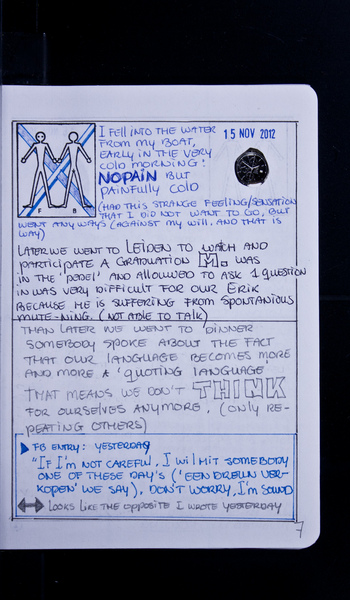 I FELL INTO THE WATER
15 NOV 2012
FROM MY BOAT,
EARLY IN THE VERY
COLD MORNING!
NO PAIN BUT
PAINFULLY COLD
(HAD THIS STRANGE FEELING/SENSATION
THAT I DID NOT WANT TO GO, BUT
F B
WENT ANYWAYS (AGAINST MY WILL, AND THAT IS
WAY)
LATER WE WENT TO LEIDEN TO WATCH AND
PARTICIPATE A GRADUATION M. WAS
IN THE 'PEDEL' AND ALLOWED TO ASK 1 QUESTION
IN WAS VERY DIFFICULT FOR OUR ERIK
BECAUSE HE IS SUFFERING FROM SPONTANIOUS
MUTE-NING. (NOT ABLE TO TALK)
THAN LATER WE WENT TO DINNER
SOMEBODY SPOKE ABOUT THE FACT
THAT OUR LANGUAGE BECOMES MORE
AND MORE A 'QUOTING LANGUAGE'
THAT MEANS WE DON'T THINK
FOR OURSELVES ANYMORE, (ONLY RE-
PEATING OTHERS)
FB ENTRY: YESTERDAY
"IF I'M NOT CAREFUL, I WILL HIT SOMEBODY
ONE OF THESE DAY'S ('EEN DREUN VER-
KOPEN' WE SAY), DON'T WORRY, I'M SOUND
LOOKS LIKE THE OPPOSITE I WROTE YESTERDAY
7